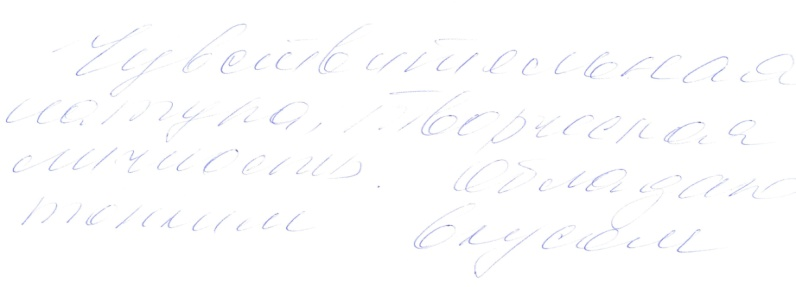 Чувствительная
натура, Творческая
личность. Обладаю
тонким вкусом